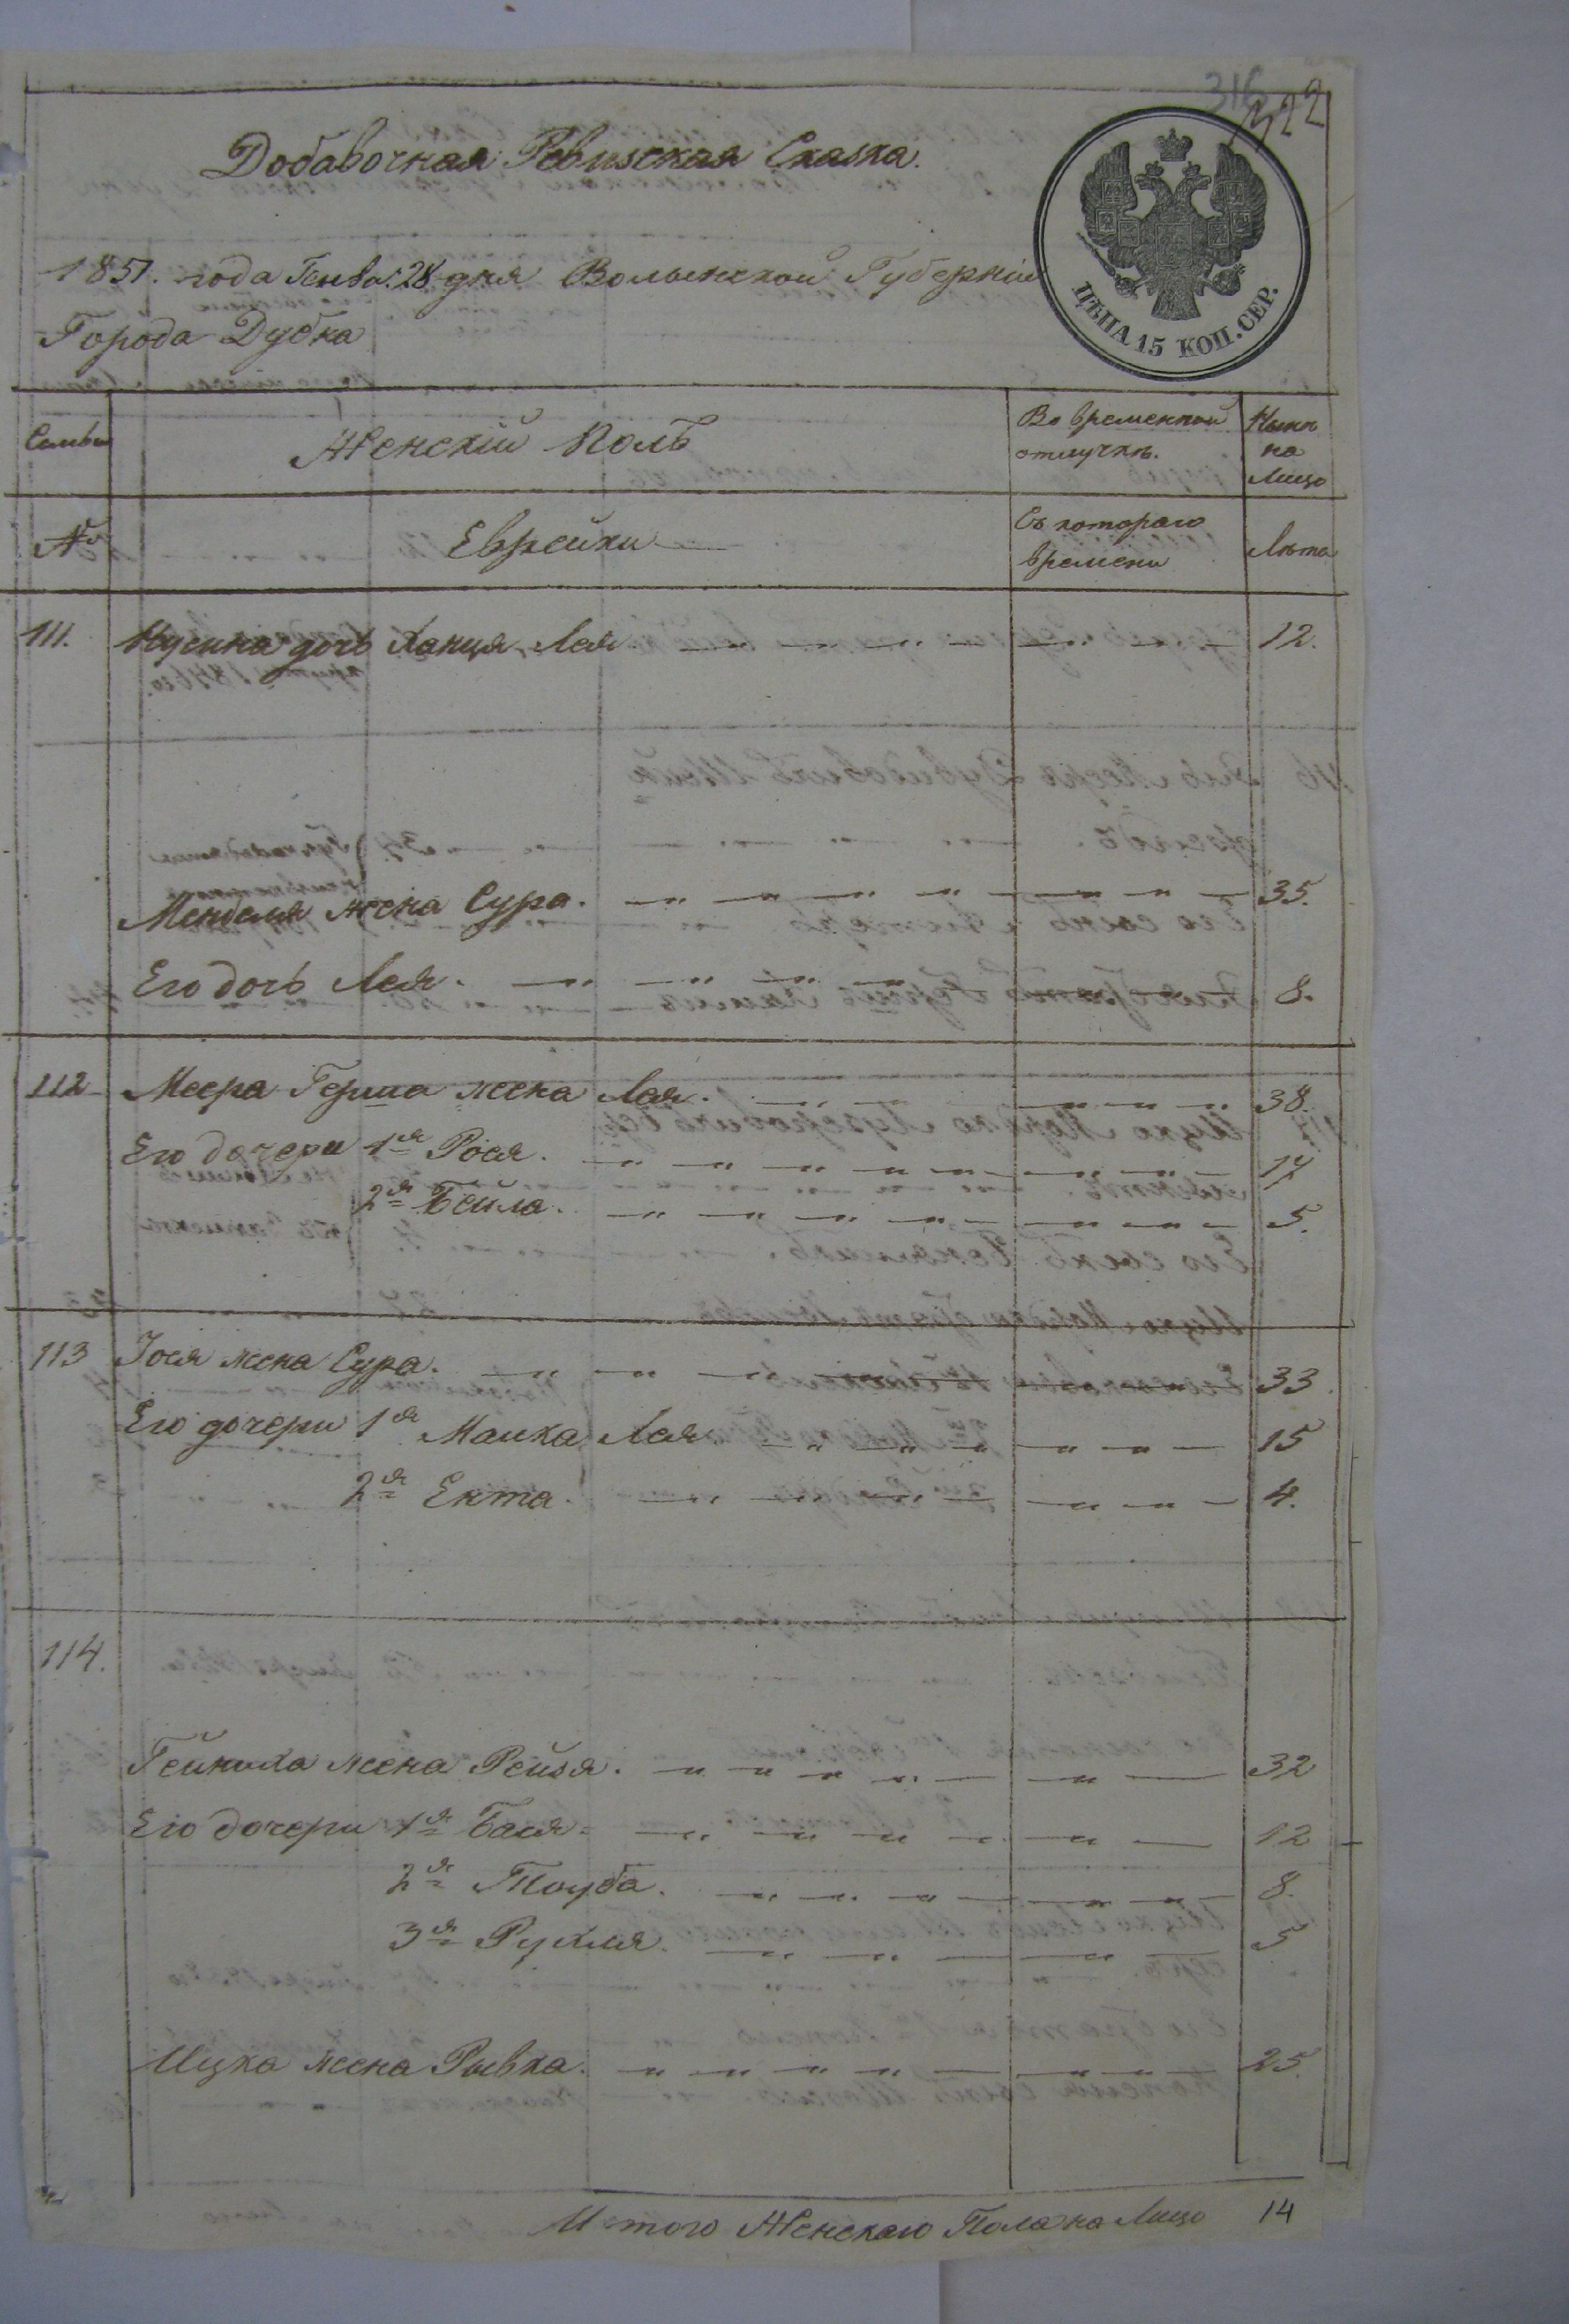 316
322
Добавочная Ревизская Сказка.
ЦѢНА 15 КОП. СЕР.
1851. года Генва. 28 дня Волынской Губерніи
Города Дубна
Семьи Женскій Полъ Во временной отлучкѣ. Нынѣ на Лицо
№ Еврейки Съ котораго времени Лѣта
111. Нусина дочь Ханця Лея 12.
Менделя жена Сура. 35.
Его дочь Лея. 8.
112 Меера Герша жена Лея. 38.
Его дочери 1я Рося. 17
2я Бейла. 5.
113 Іося жена Сура. 33
Его дочери 1я Малка Лея 15
2я Ента. 4.
114.
Гейниха жена Рейзя. 32
Его дочери 1я Бася 12
2я Тоуба. 8.
3я Рухля. 5
Ицка жена Рывка. 25.
И того Женскаго Пола на Лицо 14